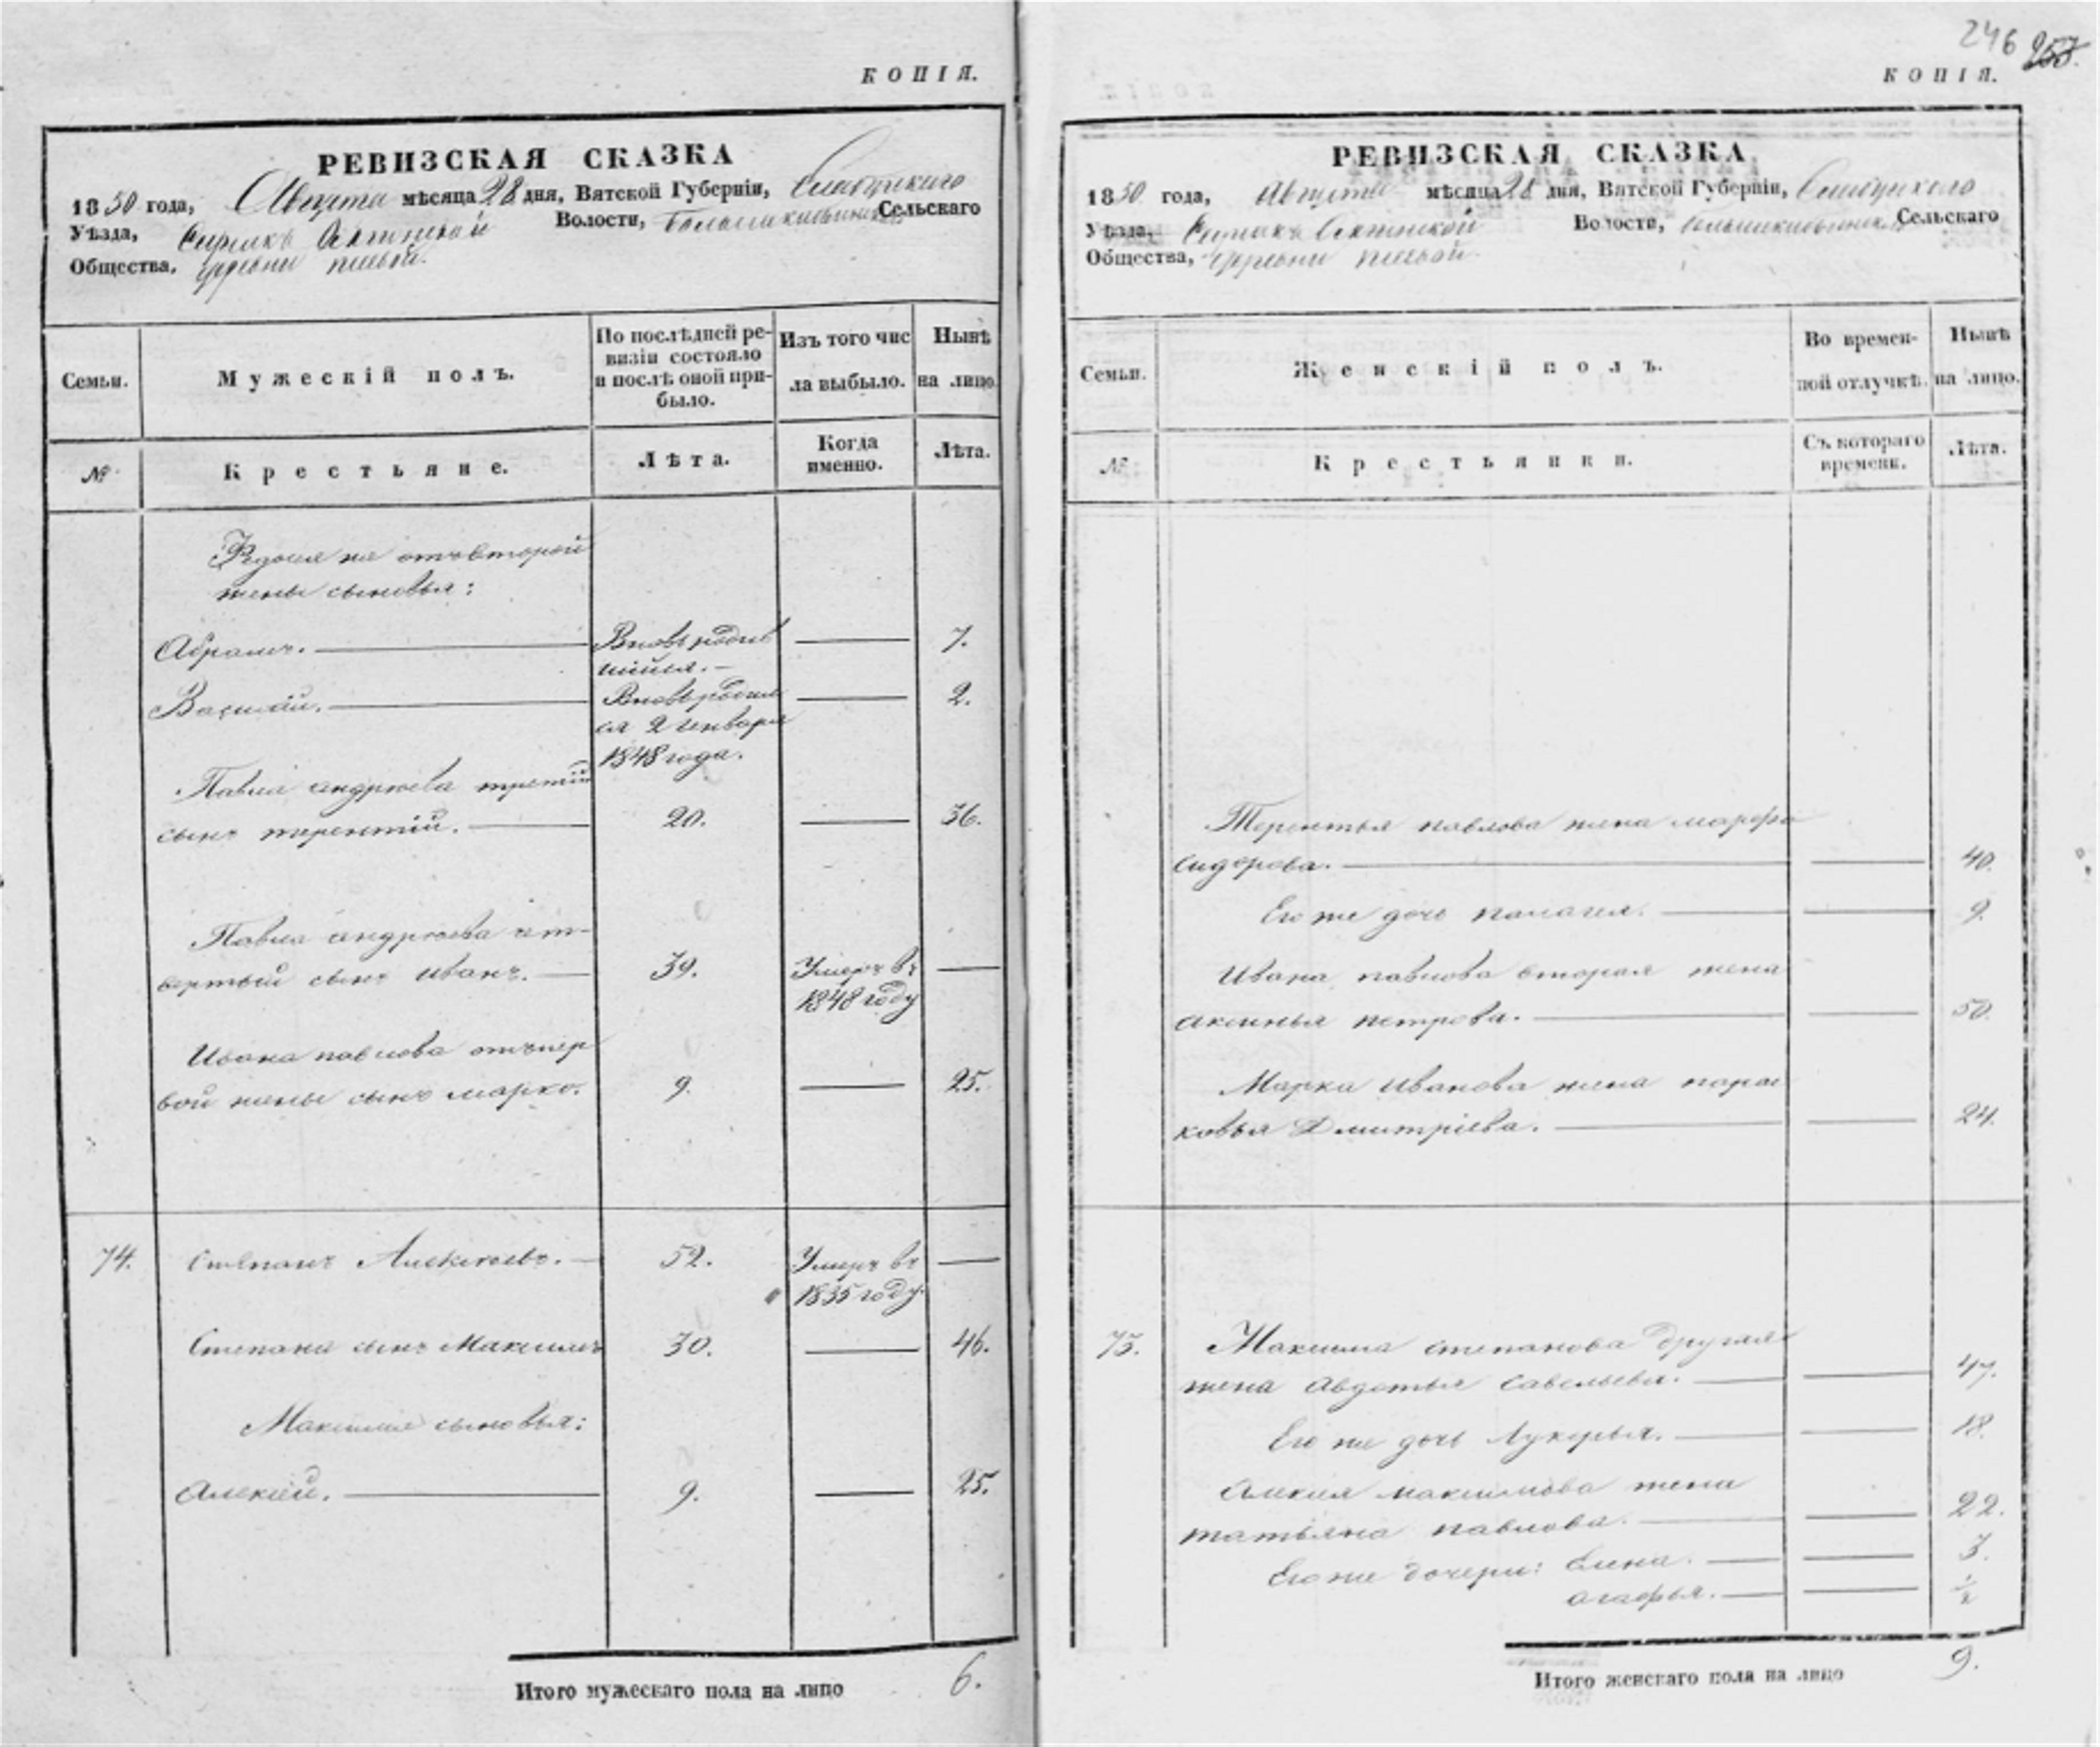 КОПІЯ.
РЕВИЗСКАЯ СКАЗКА
1850 года, Августа мѣсяца 28 дня, Вятской Губерніи,
Уѣзда, Волости, Сельскаго
Общества, деревни
Семьи.
Мужескій полъ.
По послѣдней ре-
визіи состояло
и послѣ оной при-
было.
Изъ того чис
ла выбыло.
Нынѣ
на лицо.
№
Крестьяне.
Лѣта.
Когда
именно.
Лѣта.
отъ второй
жены сыновья:
Абрамъ. Вновь родив 7.
шійся.
Василій. Вновь родил 2.
ся 2 Генваря
1848 года.
Павла андреева третій
сынъ терентій. 20. 36.
Павла андреева чет-
вертый сынъ иванъ. 39. Умеръ въ
1848 году
Ивана павлова отъ пер
вой жены сынъ марко. 9. 25.
74. Степанъ Алексѣевъ. 52. Умеръ въ
1835 году.
Степана сынъ Максимъ 30. 46.
Максима сыновья:
Алексѣй. 9. 25.
Итого мужескаго пола на лицо 6.
246 253.
КОПІЯ.
РЕВИЗСКАЯ СКАЗКА
1850 года, Августа мѣсяца 28 дня, Вятской Губерніи,
Уѣзда, Волости, Сельскаго
Общества, деревни
Семьи.
Женскій полъ.
Во времен-
ной отлучкѣ.
Нынѣ
на лицо.
№
Крестьянки.
Съ котораго
времени.
Лѣта.
Терентья павлова жена марфа
сидорова. 40.
Его же дочь палагея. 9.
Ивана павлова вторая жена
аксинья петрова. 50.
Марка иванова жена парас
ковья Дмитріева. 24.
75. Максима степанова другая
жена авдотья савельева. 47.
Его же дочь лукерья. 18.
Алексѣя максимова жена
татьяна павлова. 22.
Его же дочери: Елена. 3.
агафья. ½
Итого женскаго пола на лицо 9.